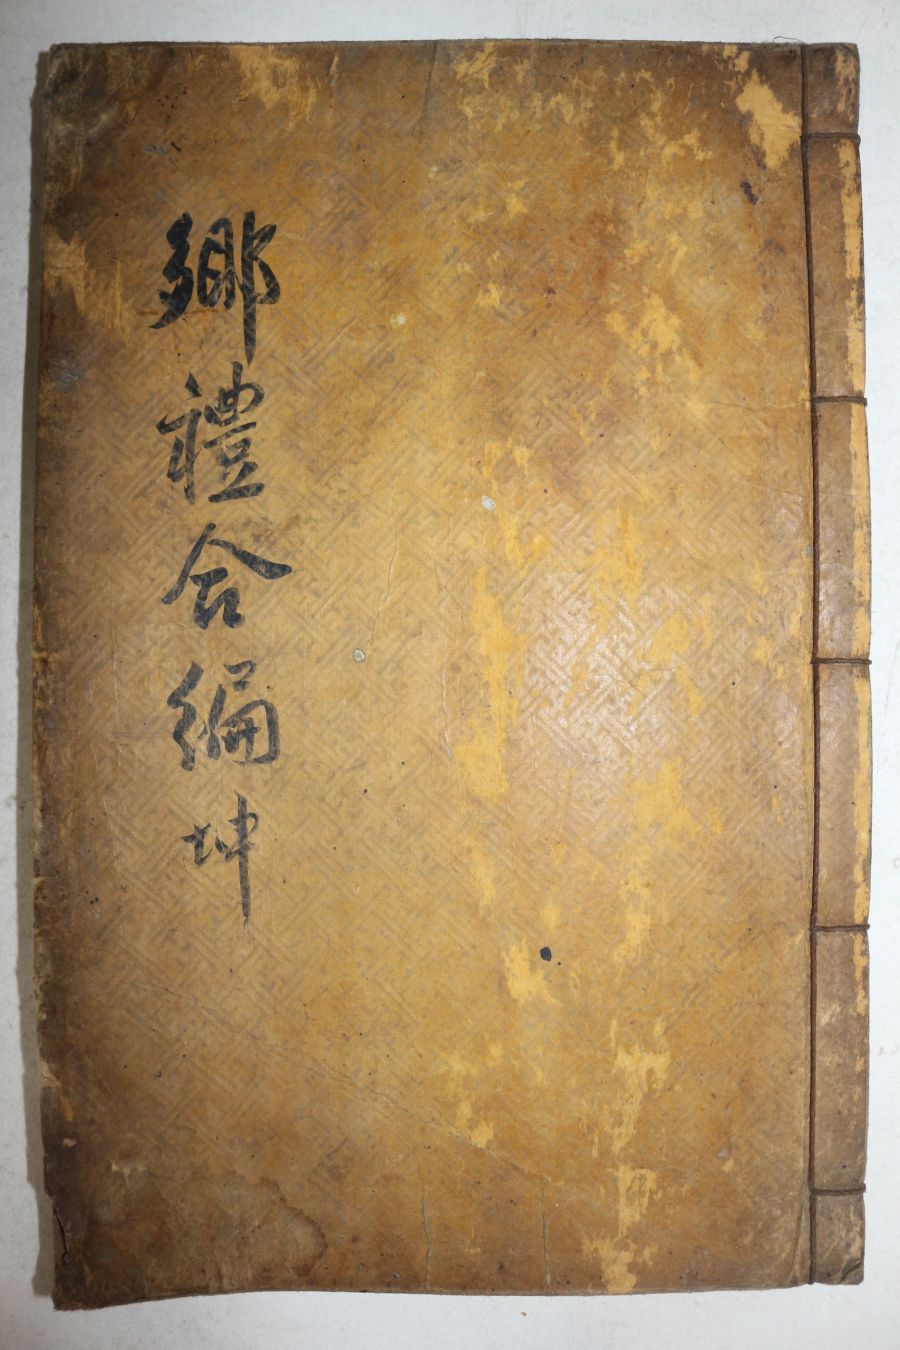 鄉禮合編 坤